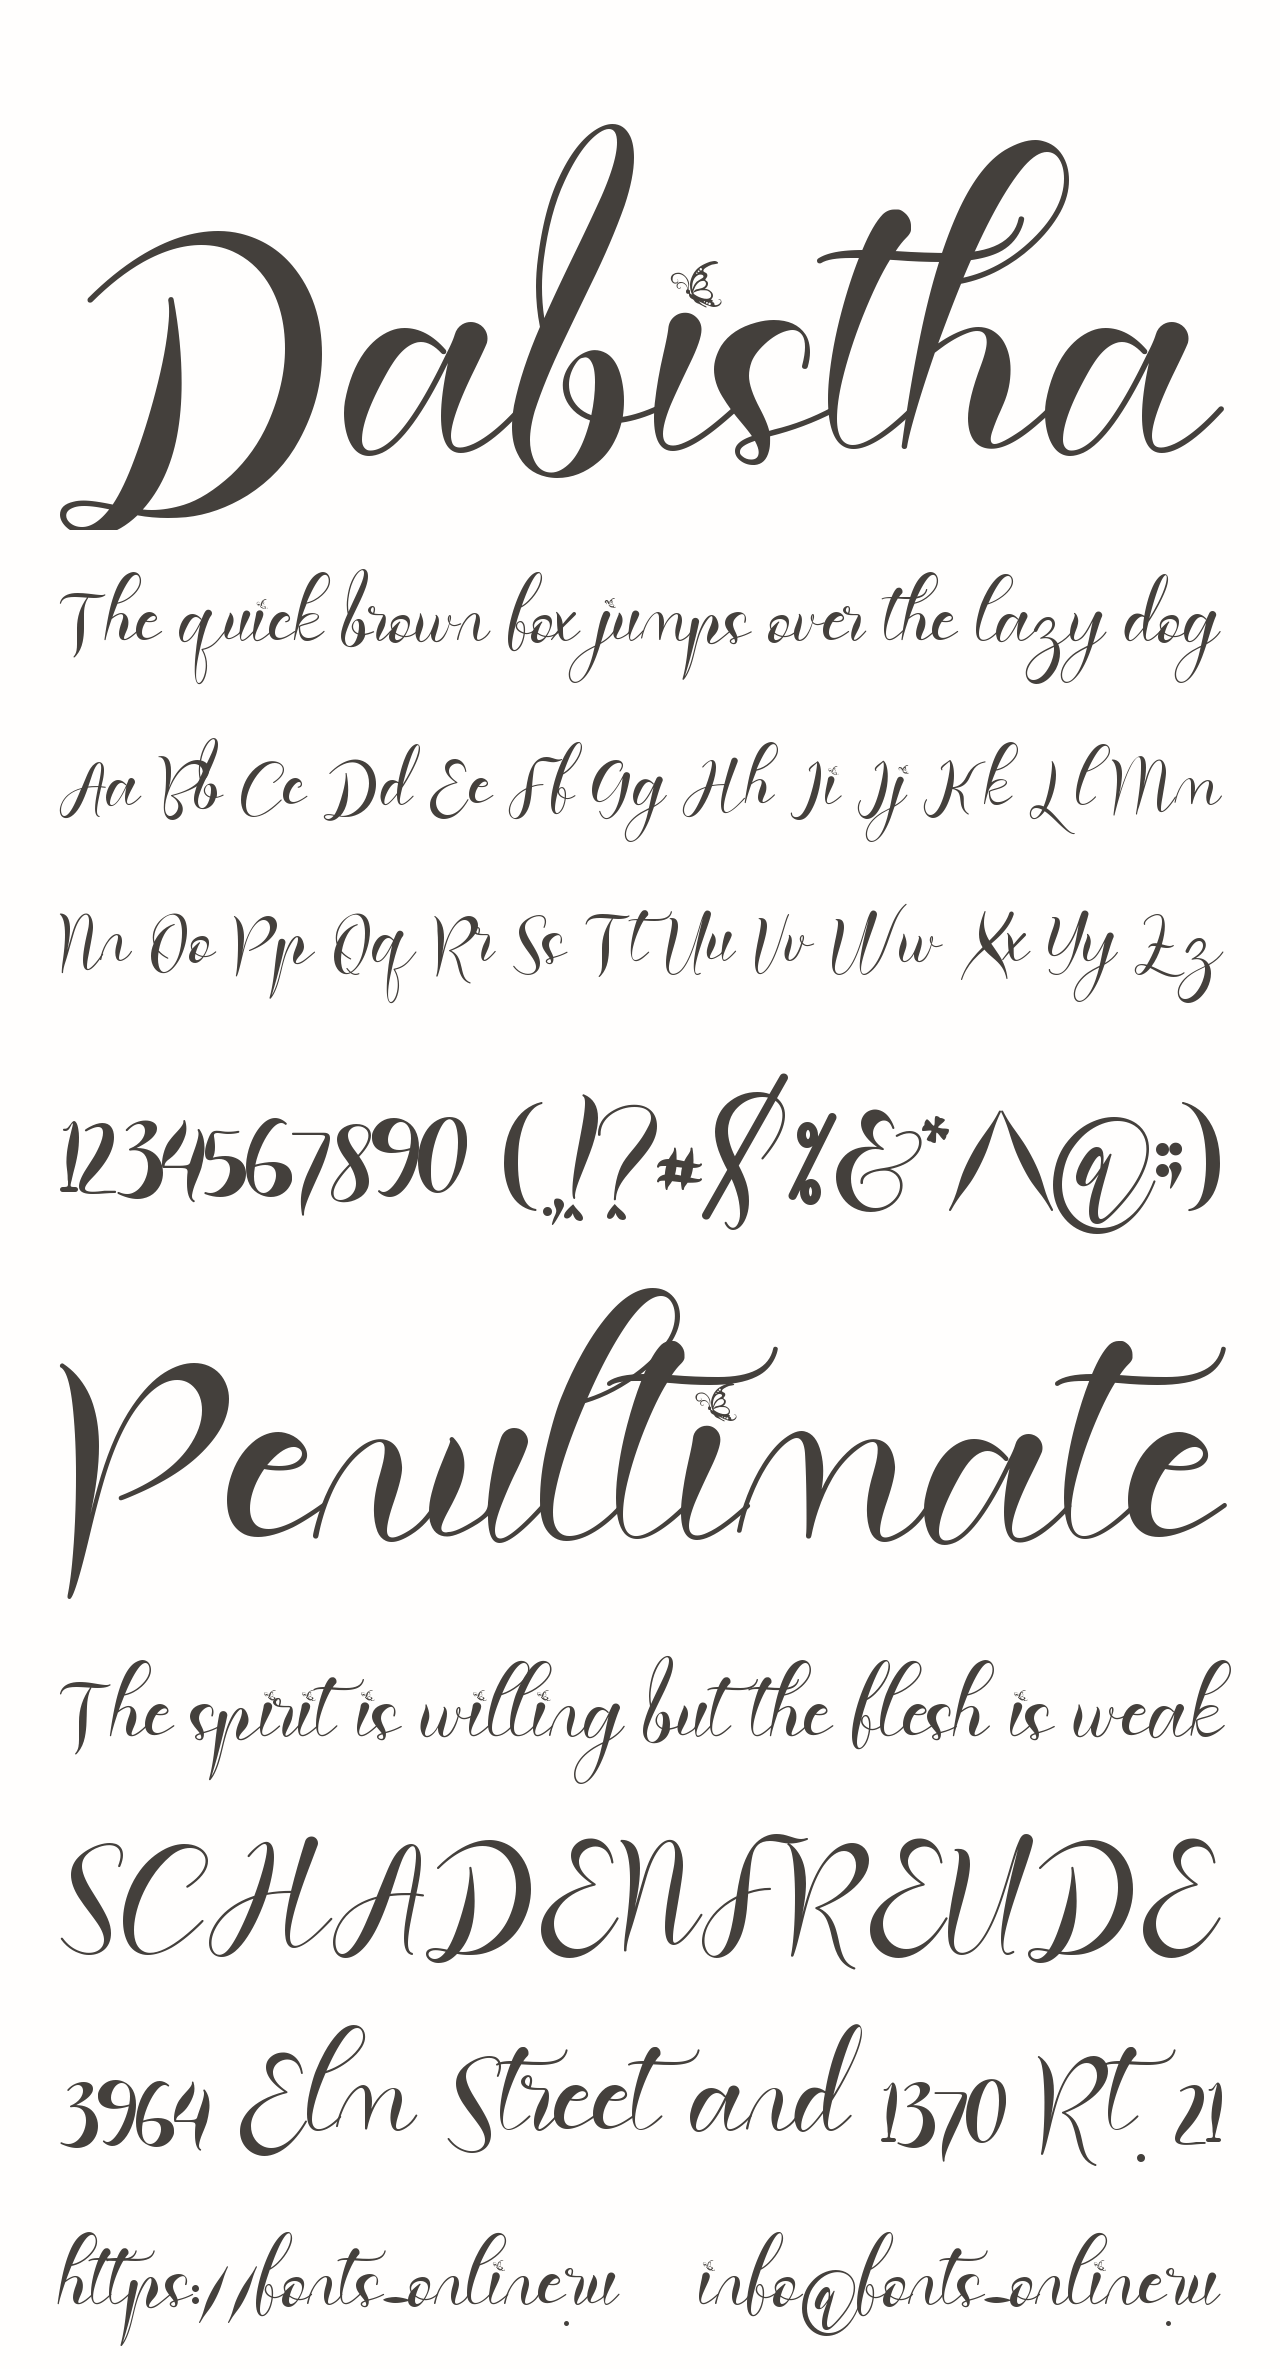 Dabistha
The quick brown fox jumps over the lazy dog
Aa Bb Cc Dd Ee Ff Gg Hh Ii Jj Kk Ll Mm
Nn Oo Pp Qq Rr Ss Tt Uu Vv Ww Xx Yy Zz
1234567890 (.,!?#$%&*/\@:;)
Penultimate
The spirit is willing but the flesh is weak
SCHADENFREUDE
3964 Elm Street and 1370 Rt. 21
https://fonts-online.ru info@fonts-online.ru